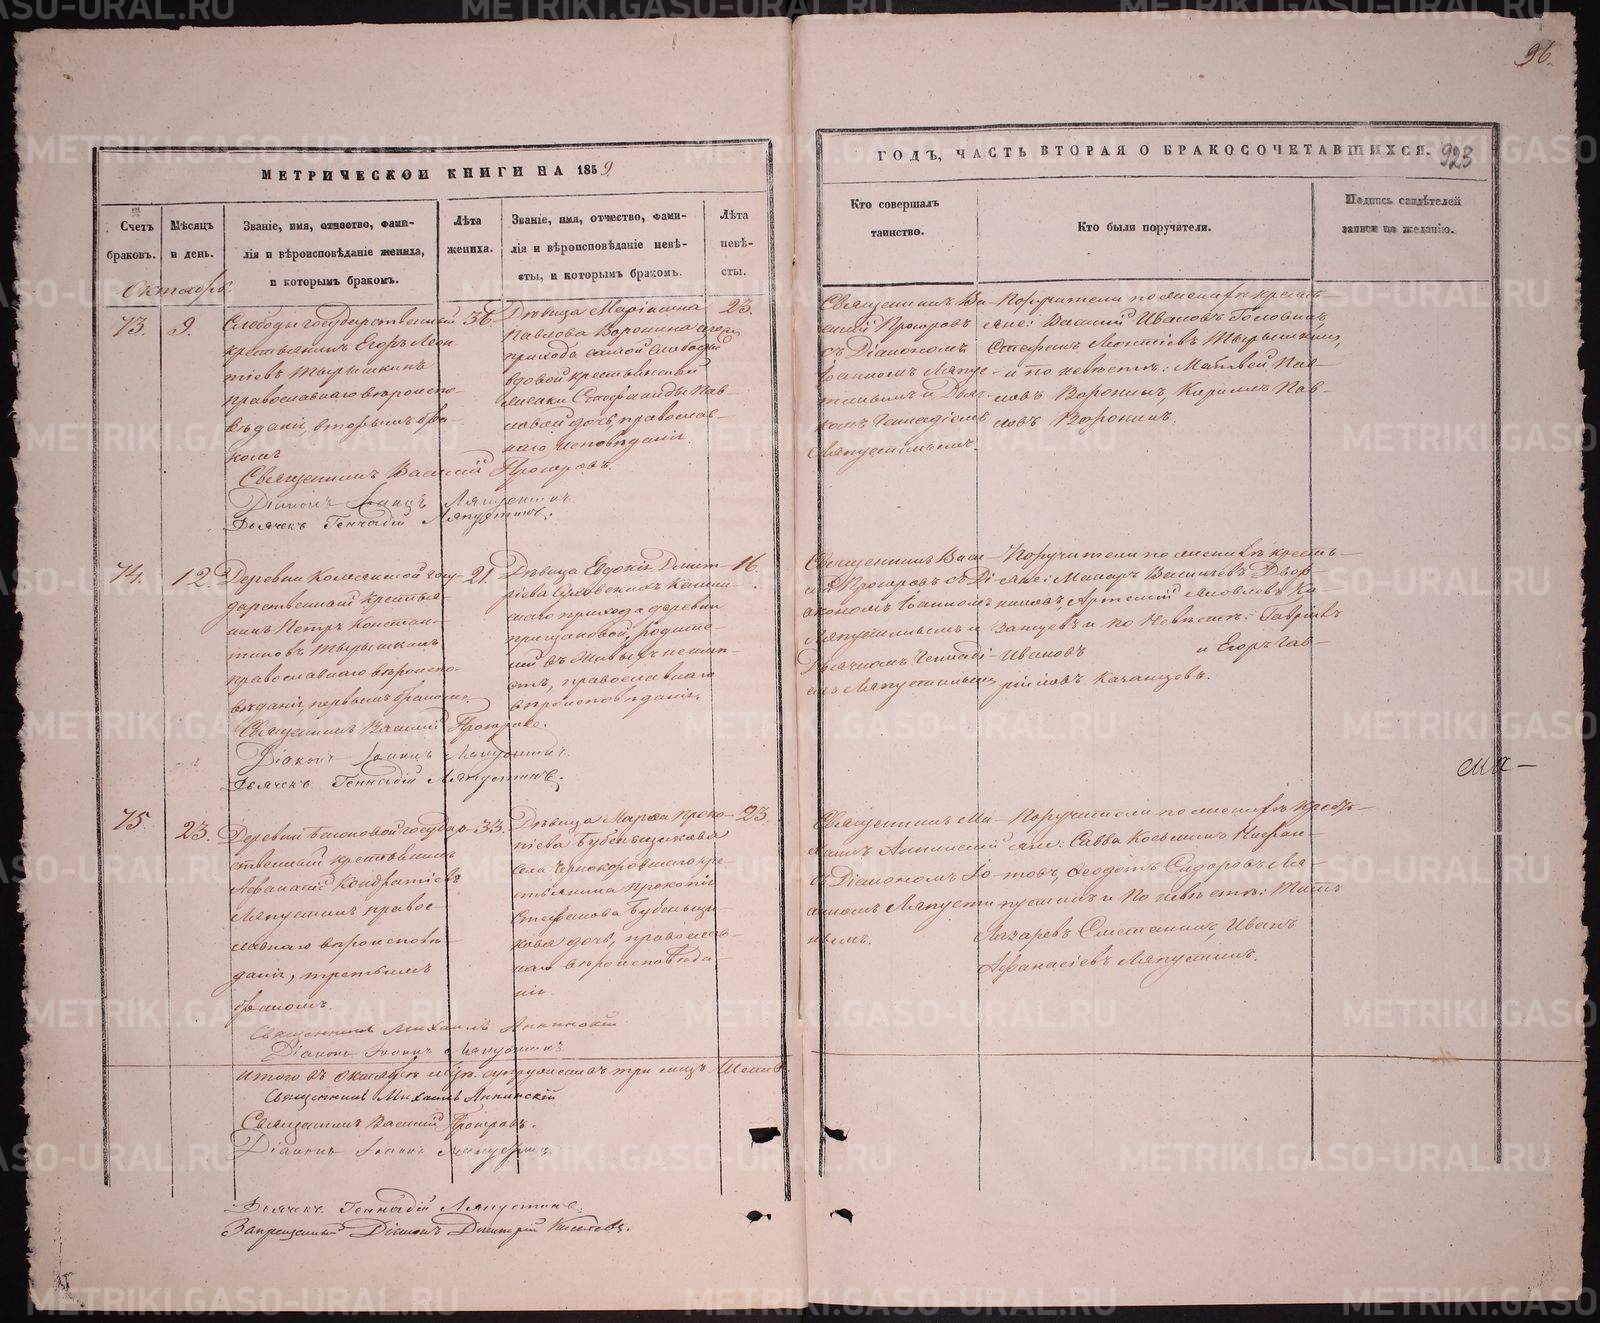 96.
МЕТРИЧЕСКОЙ КНИГИ НА 1859
ГОДЪ, ЧАСТЬ ВТОРАЯ О БРАКОСОЧЕТАВШИХСЯ.
923
Счетъ браковъ.
Мѣсяцъ и день.
Званіе, имя, отчество, фами-
лія и вѣроисповѣданіе жениха,
и которымъ бракомъ.
Лѣта жениха.
Званіе, имя, отчество, фами-
лія и вѣроисповѣданіе невѣ-
сты, и которымъ бракомъ.
Лѣта невѣ-
сты.
Кто совершалъ
таинство.
Кто были поручители.
Подпись свидѣтелей
записи по желанію.
Октябрь.
73.
9.
Слободы государственный
крестьянинъ Егоръ Леон
тіевъ Тырышкинъ
православнаго вѣроиспо-
вѣданія, вторымъ бра-
комъ
36.
Дѣвица Маріанна
Павлова Воронина
прихода слободы
вдовой крестьянской
женки Стефаниды Пав-
ловой дочь, православ-
наго исповѣданія.
23.
Священникъ Ва-
силій Прозоровъ
съ Діакономъ
Іоанномъ Ляпус-
тинымъ и Дьяч-
комъ Геннадіемъ
Ляпустинымъ.
Поручители по женихѣ кресть-
яне: Василій Ивановъ Головинъ,
Стефанъ Леонтіевъ Тырышкинъ,
и по невѣстѣ: Матвей Пав-
ловъ Воронинъ, Кирилъ Пав-
ловъ Воронинъ.
Священникъ Василій Прозоровъ.
Діаконъ Іоаннъ Ляпустинъ
Дьячекъ Геннадій Ляпустинъ.
74.
12
Деревни госу-
дарственный крестья-
нинъ Петръ Констан-
тиновъ Тырышкинъ
православнаго вѣроиспо-
вѣданія, первымъ бракомъ.
21.
Дѣвица Евдокія Димит-
ріева
прихода деревни
родите-
лей въ живыхъ неимѣ-
етъ, православнаго
вѣроисповѣданія.
16.
Священникъ Васи-
лій Прозоровъ съ Ді-
акономъ Іоанномъ
Ляпустинымъ и
Дьячкомъ Геннаді-
емъ Ляпустинымъ
Поручители по женихѣ кресть-
яне: Макаръ Васильевъ Двор-
никовъ, Артемій Яковлевъ Ка-
занцевъ и по невѣстѣ: Гавріилъ
Ивановъ и Егоръ Гав-
ріиловъ Казанцовъ.
Священникъ Василій Прозоровъ.
Діаконъ Іоаннъ Ляпустинъ.
Дьячекъ Геннадій Ляпустинъ.
ма-
75.
23.
Деревни государ-
ственный крестьянинъ
Афанасій Кондратіевъ
Ляпустинъ правос-
лавнаго вѣроисповѣ-
данія, третьимъ
бракомъ.
33.
Дѣвица Марѳа Проко-
піева Бубенщикова
села Чернокоровскаго кре-
стьянина Прокопія
Стефанова Бубенщи-
кова дочь, православ-
наго вѣроисповѣда-
нія.
23.
Священникъ Ми-
хаилъ Аннинскій
съ Діакономъ Іо-
анномъ Ляпусти-
нымъ.
Поручители по женихѣ кресть-
яне: Савва Косьминъ
Ѳеодотъ Сидоровъ Ля-
пустинъ и по невѣстѣ: Титъ
Лазаревъ Сметанинъ, Иванъ
Афанасіевъ Ляпустинъ.
Священникъ Михаилъ Аннинскій
Діаконъ Іоаннъ Ляпустинъ
Итого въ Октябрѣ три лицъ шесть
Священникъ Михаилъ Аннинскій
Священникъ Василій Прозоровъ.
Діаконъ Іоаннъ Ляпустинъ
Дьячекъ Геннадій Ляпустинъ.
Запрещенный Діаконъ Димитрій Киселевъ.
METRIKI.GASO-URAL.RU